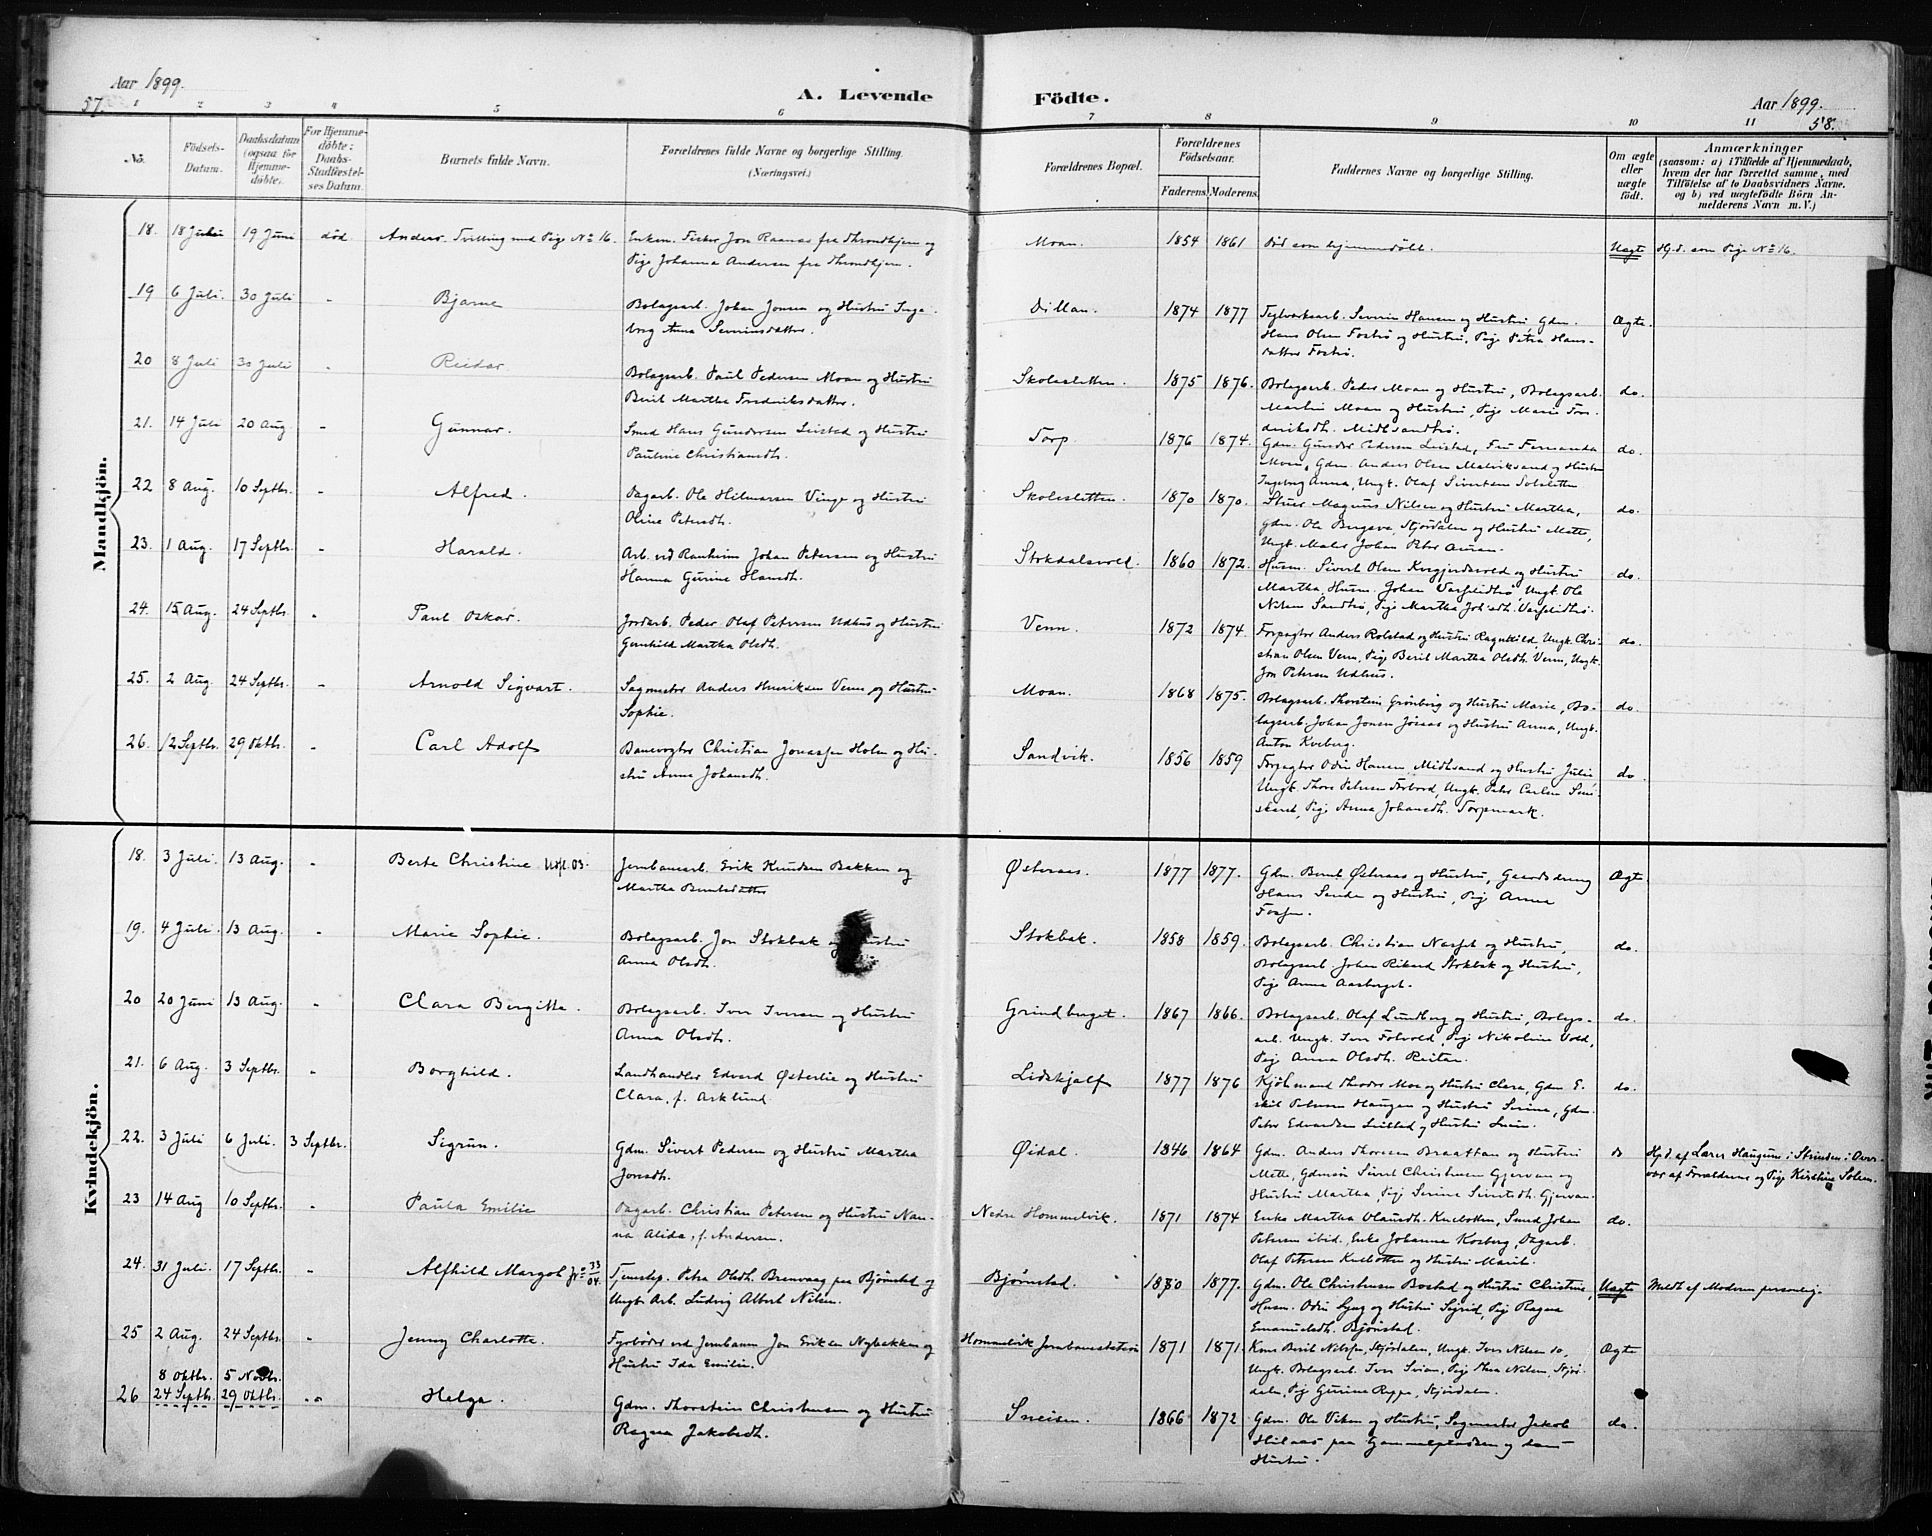 Aar 1899.
57.
A. Levende
Födte.
Aar 1899.
58.
1 2 3 4 5 6 7 8 9 10 11
No. Födsels-Datum. Daabsdatum (ogsaa for Hjemme-döbte). For Hjemme-döbte: Daabs-Stadfæstel-ses Datum. Barnets fulde Navn. Forældrenes fulde Navne og borgerlige Stilling. (Næringsvei.) Forældrenes Bopæl. Forældrenes Födselsaar. Faderens. Moderens. Faddernes Navne og borgerlige Stilling. Om ægte eller uægte födt. Anmærkninger (saasom: a) i Tilfælde af Hjemmedaab, hvem der har forrettet samme, med Tilföielse af to Daabsvidners Navne. og b) ved uægtefödte Börn An-melderens Navn m. V.)
Mandkjön.
18. 18 Juni 19 Juni död Anders. Tvilling med Pige No 16. Enkem. Fisker Jon Raanes fra Throndhjem og Moan. 1854 1861 Död som hjemmedöbt. Uægte Hj.d. som Pige No 16.
Pige Johanna Andersen fra Throndhjem.
19 6 Juli 30 Juli - Bjarne Bolagsarb. Johan Jonsen og Hustru Inge- Dillan. 1874 1877 Teglverksarb. Severin Hansen og Hustru, Gdm. Ægte.
borg Anna Severinsdatter. Hans Olsen Foströ og Hustru, Pige Petra Hans-
datter Foströ.
20 8 Juli 30 Juli - Reidar Bolagsarb. Paul Pedersen Moan og Hustru Skolesletten. 1875 1876. Bolagsarb. Peder Moan og Hustru, Bolagsarb. do.
Beril Martha Frederiksdatter. Martin Moan og Hustru, Pige Marie Fre-
deriksdh. Midtsandtrö.
21. 14 Juli 20 Aug - Gunnar. Smed Hans Gundersen Leistad og Hustru Torp. 1876 1874. Gdm. Gunder Pedersen Leistad, Fru Fernanda do.
Pauline Christiansdh. Moan, Gdm. Anders Olsen Malviksand og Hustru
Ingeborg Anna, Ungk. Olaf Sivertsen Solsletten
22 8 Aug. 10 Septbr. - Alfred. Dagarb. Ole Hilmarsen Vinge og Hustru Skolesletten. 1870 1870. Stuer Magnus Nilsen og Hustru Martha, do.
Oline Petersdh. Gdm. Ole Bergsve, Stjördalen og Hustru Mette,
Ungk. Maler Johan Peter Auran.
23. 1 Aug. 17 Septbr. - Harald. Arb. ved Ranheim Johan Petersen og Hustru Stokdalsvold. 1860 1872. Husm. Sivert Olsen og Hustru do.
Hanna Gurine Hansdh. Martha, Husm. Johan Ungk. Ole
Nilsen Sandtrö, Pige Martha
24. 15 Aug. 24 Septbr. - Paul Oskar. Jordarb. Peder Olaf Petersen Udhus og Hustru Venn. 1872 1874. Forpagter Anders Rolstad og Hustru Ragnhild, Ungk. Chri- do.
Gunhild Martha Olsdh. stian Olsen Venn, Pige Beril Martha Olsdh. Venn, Ungk.
Jon Petersen Udhus.
25. 2 Aug. 24 Septbr. - Arnold Sigvart. Sagmester Anders Henriksen Venn og Hustru Moan. 1868 1875. Bolagsarb. Thorstein Grönberg og Hustru Marie, Bo- do.
Sophie. lagsarb. Johan Jonsen Josaas og Hustru Anna, Ungk.
Anton Kveberg.
26. 12 Septbr. 29 Oktbr. - Carl Adolf Banevogter Christian Jonassen Holm og Hu- Sandvik. 1856 1859 Forpagter Odin Hansen Midtsand og Hustru Julie do.
stru Anne Johansdh. Ungk. Thore Petersen Forbord, Ungk. Peter Carlsen
Pige Anna Johansdh. Torpmark.
Kvindekjön.
18. 3 Juli. 13 Aug. - Berte Christine Udfl. 03. Jernbanearb. Erik Knudsen Bakken og Østeraas. 1877 1877. Gdm. Bernt Østeraas og Hustru, Gaardsdreng Ægte.
Martha Berntsdatter Hans Sende og Hustru, Pige Anna
Fossen.
19. 4 Juli. 13 Aug. - Marie Sophie. Bolagsarb. Jon Stokbak og Hustru Stokbak. 1858 1859. Bolagsarb. Christian Næsset og Hustru, do.
Anna Olsdh. Bolagsarb. Johan Rikard Stokbak og Hustru,
Pige Anna Aasberget.
20 20 Juni 13 Aug. - Clara Bergitte. Bolagsarb. Iver Iversen og Hustru Grindberget. 1867 1866. Bolagsarb. Olaf Lundberg og Hustru, Bolags- do.
Anna Olsdh. arb. Ungk. Iver Folvold, Pige Nikoline Vold,
Pige Anna Olsdh. Reitan.
21. 6 Aug. 3 Septbr. - Borghild. Landhandler Edvard Østerlie og Hustru Lidskjalf 1877 1876 Kjöbmand Theodor Moe og Hustru Clara, Gdm. E- do.
Clara, f. Arklund. skil Petersen Haugan og Hustru Serine, Gdm.
Peter Edvardsen Leistad og Hustru
22. 3 Juli 6 Juli. 3 Septbr. Sigrun. Gdm. Sivert Pedersen og Hustru Martha Øidal. 1846 1864 Gdm. Anders Thoresen Braattan og Hustru do Hj.d. af Lars Haugum i Strinden i Over-
Jonsdh. Mette, Gdmsön Sivert Christensen Gjervan og vær af Forældrene og Pige Kirstine Solem.
Hustru Martha, Pige Serine Sivertsdh. Gjervan.
23 14 Aug 10 Septbr. - Paula Emilie Dagarb. Christian Petersen og Hustru Nan- Nedre Hommelvik. 1871 1874 Enke Martha Olausdh. Smed Johan do.
na Alida, f. Andersen. Petersen ibid. Enke Johanna Kosberg, Dagarb.
Olaf Petersen og Hustru Marit.
24. 31 Juli. 17 Septbr. - Alfhild Margot Jr = 33/04. Tjenstep. Petra Olsdh. Brenvaag paa Bjørnstad og Bjørnstad. 1880 1877. Gdm. Ole Christensen Bostad og Hustru Christine, Uægte Meldt af Moderen personlig.
Ungk. Arb. Ludvig Albert Nilsen. Husm. Odin og Hustru Sigrid, Pige Ragna
Emanuelsdh. Bjørnstad.
25 2 Aug. 24 Septbr. - Jenny Charlotte. Fyrböder ved Jernbanen Jon Eriksen Nybakken og Hommelvik Jernbanestation 1871 1871. Kone Beril Nilsen, Stjördalen, Ungk. Iver Nilsen do, Ægte
Hustru Ida Emilie. Ungk. Bolagsarb. Iver Svian, Pige Thea Nilsen, Stjör-
dalen, Pige Gurine Reppe, Stjördalen.
8 Oktbr. 5 Novbr.
26 24 Septbr. 29 Oktbr. - Helga. Gdm. Thorstein Christensen og Hustru Sneisen. 1866 1872 Gdm. Ole Viken og Hustru, Sagmester Jakob do.
Ragna Jakobsdh. Hilaas paa Gammelpladsen og dennes
Hustru.